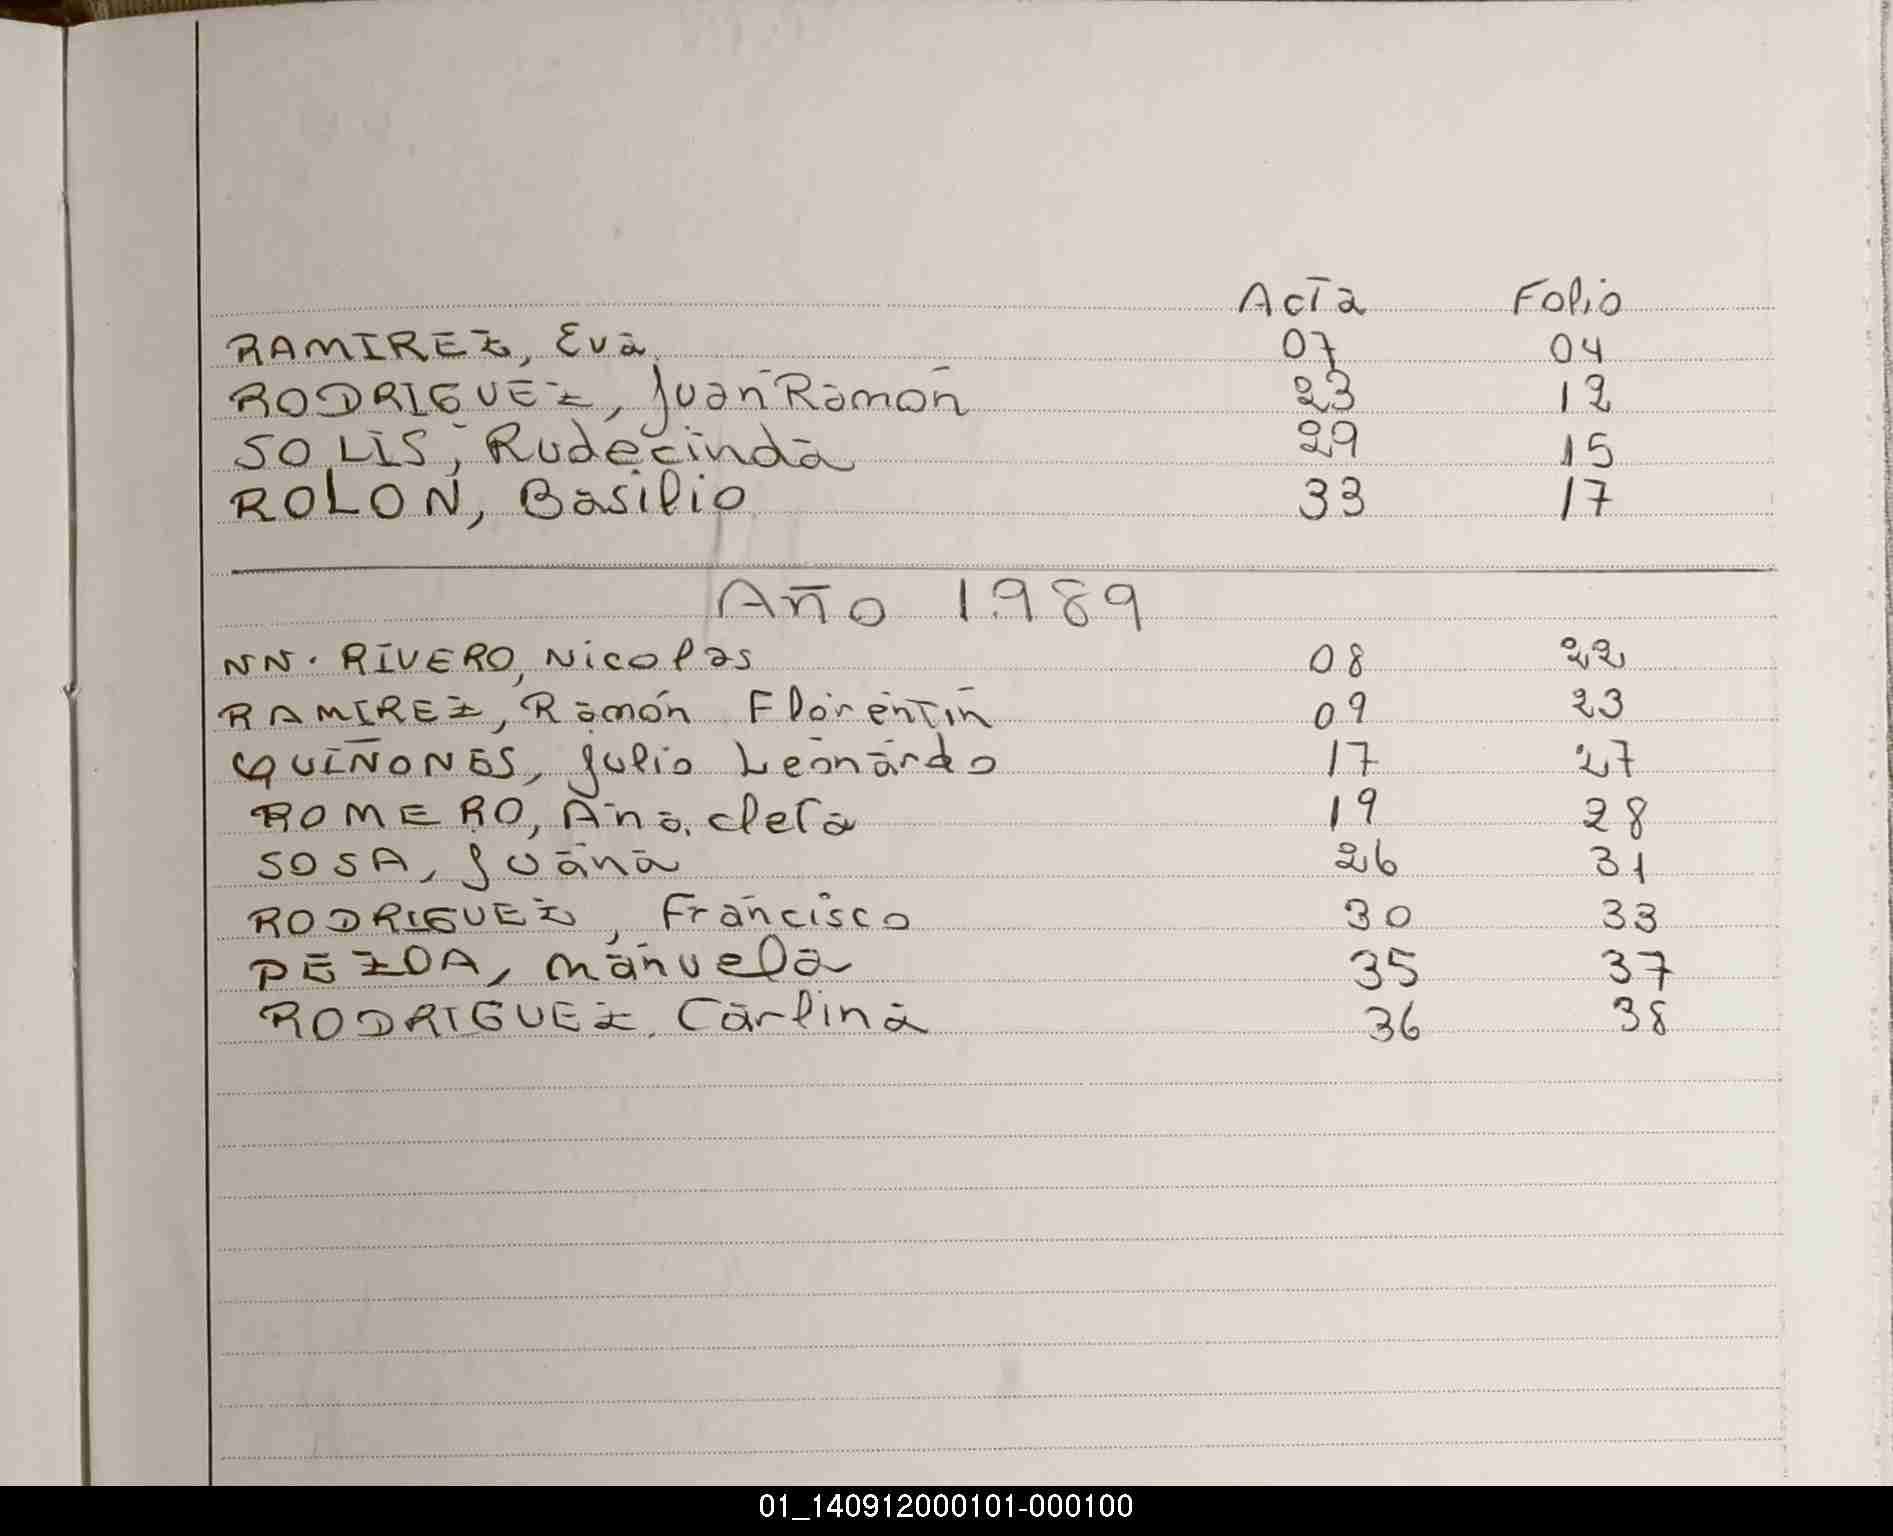 Acta Folio
RAMIREZ, Eva 07 04
RODRIGUEZ, Juan Ramón 23 12
SOLIS, Rudecinda 29 15
ROLON, Basilio 33 17
Año 1989
NN. RIVERO, Nicolas 08 22
RAMIREZ, Ramón Florentin 09 23
QUIÑONES, Julio Leonardo 17 27
ROMERO, Ana.cleta 19 28
SOSA, Juana 26 31
RODRIGUEZ, Francisco 30 33
PEZOA, Manuela 35 37
RODRIGUEZ, Carlina 36 38
01_140912000101-000100